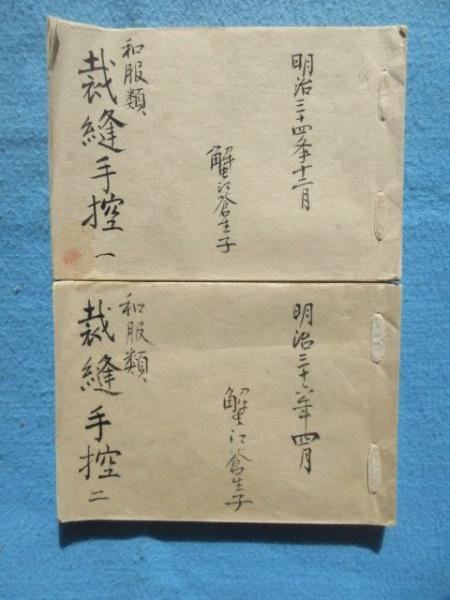 明治三十四年十二月
蟹江蒼生子
和服類
裁縫手控 一
明治三十六年四月
蟹江蒼生子
和服類
裁縫手控 二